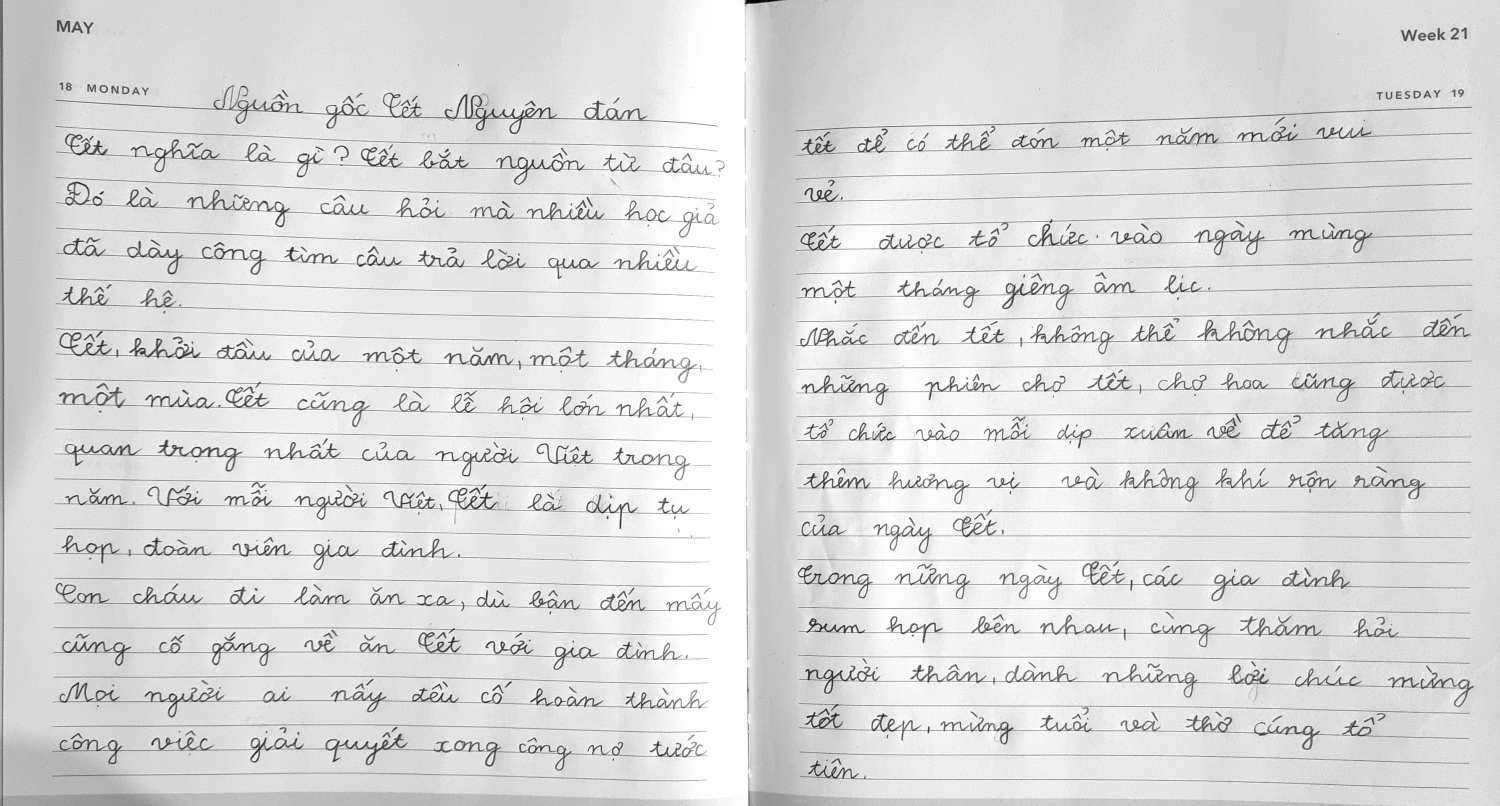 MAY
18 MONDAY
Nguồn gốc Tết Nguyên đán
Tết nghĩa là gì? Tết bắt nguồn từ đâu?
Đó là những câu hỏi mà nhiều học giả
đã dày công tìm câu trả lời qua nhiều
thế hệ.
Tết, khởi đầu của một năm, một tháng,
một mùa. Tết cũng là lễ hội lớn nhất,
quan trọng nhất của người Việt trong
năm. Với mỗi người Việt, Tết là dịp tụ
họp, đoàn viên gia đình.
Con cháu đi làm ăn xa, dù bận đến mấy
cũng cố gắng về ăn Tết với gia đình.
Mọi người ai nấy đều cố hoàn thành
công việc giải quyết xong công nợ tước
Week 21
TUESDAY 19
tết để có thể đón một năm mới vui
vẻ.
Tết được tổ chức vào ngày mùng
một tháng giêng âm lịc.
Nhắc đến tết, không thể không nhắc đến
những phiên chợ tết, chợ hoa cũng được
tổ chức vào mỗi dịp xuân về để tăng
thêm hương vị và không khí rộn ràng
của ngày Tết.
Trong nững ngày Tết, các gia đình
sum họp bên nhau, cùng thăm hỏi
người thân, dành những lời chúc mừng
tốt đẹp, mừng tuổi và thờ cúng tổ
tiên.